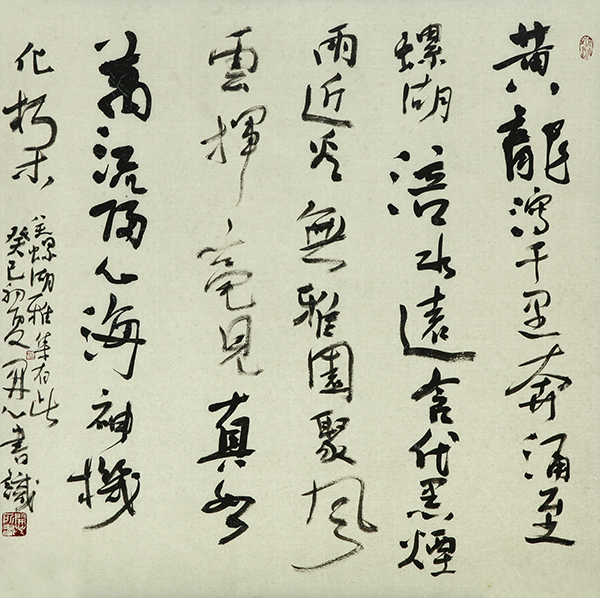 黄龍瀉千里奔涌至
螺湖涪水遠含黛煙
雨近無雅園聚風
雲揮毫見真如
萬流歸心海神機
化朽木
螺湖雅集有此
癸巳初夏開心書識